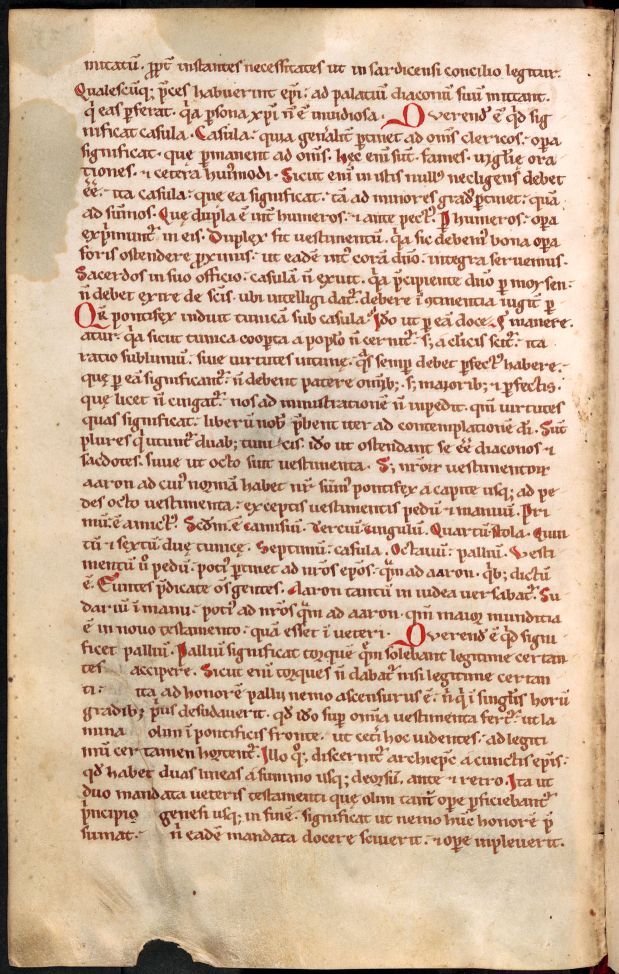 mitatū. ꝓpt̄ instantes necessitates ut in sardicensi concilio legitur.
Qualescūq; p̄ces habuerint ep̄i. ad palatiū diaconū suū mittant.
q̇ eas p̄ferat. q̇a p̄sona xp̄i n̄ ē inuidiosa. Querend' ē q̇d sig
nificat casula. Casula. quia gen̄alit̄ ꝑtinet ad om̄s clericos. opa
significat. que ꝑmanent ad om̄s. hęc eni sūt. fames. uigilie ora
tiones. ⁊ cetera hui'modi. Sicut enī in istis null' necligens debet
ēē. ita casula. que ea significat. tā ad minores grad' ꝑtinet. quā
ad sūmos. Quę dupla ē int̄ humeros. ⁊ ante pect'. P humeros. opa
exp̄imunt' in eis. Duplex fit uestimentū. q̇a sic debem' bona opa
foris ostendere ꝓximis. ut eadē int' corā dn̄o. integra seruemus.
Sacerdos in suo officio. casulā n̄ exuit. q̇a p̄cipiente dn̄o ꝑ moysen.
n̄ debet exire de sc̄is. ubi intelligi dat'. debere ī ꝯtinentia iugit̄ ꝑ
Qn̄ pontifex induit tunicā sub casula. Ido ut ꝑ eā doce manere.
atur. q̇a sicut tunica cooꝑta a poplo n̄ cernit'. s; a clicis scit'. ita
ratio sublimiū. siue uirtutes uitunę. q̇s semꝑ debet ꝑfect' habere.
quę ꝑ eā significant'. n̄ debent patere omib; s; maiorib; ⁊ ꝑfectis.
quę licet n̄ cingat'. nos ad ministrationē n̄ inpedit. qm̄ uirtutes
quas significat. liberū nob' p̄bent iter ad contemplationē di. Sūt
plures q̇ utunt' duab; tunicis. ido ut ostendant se ēē diaconos ⁊
sacdotes. siue ut octo sint uestimenta. S; nr̄oꝝ uestimentoꝝ
aaron ad cui' normā habet nr̄ sūm' pontifex a capite usq; ad pe
des octo uestimenta. exceptis uestimentis pedū ⁊ manuū. Pri
mū ē amict'. Scdm̄ ē camisiū. Terciū cingulū. Quartū stola. Quin
tū ⁊ sextū duę tunicę. Septimū. casula. Octauū. palliū. Vesti
mentū u° pedū. poti' ꝑtinet ad nr̄os ep̄os. q̇m ad aaron. q̇b; dictū
ē. Euntes p̄dicate om̄s gentes. Aaron tantū in iudea uersabat'. Su
dariū ī manu. poti' ad nr̄os q̇m ad aaron. qm̄ maioꝝ munditia
ē in nouo testamento. quā esset ī ueteri. Querend' ē q̇d signi
ficet palliū. Palliū significat torquē q̇m solebant legitime certan
tes accipere. Sicut enī torques n̄ dabat' nisi legitime certan
ti. ita ad honorē pallii nemo ascensurus ē. n̄ q̇ ī singlis horū
gradib; p̄us desudauerit. qd ido suꝑ omnia uestimenta fert'. ut la
mina olim ī pontificis fronte. ut cet̄i hoc uidentes. ad legiti
mū certamen hortent'. Illo q°; discernit' archiepc a cunctis ep̄is.
qd habet duas lineas a summo usq; deorsū. ante ⁊ retro. Ita ut
duo mandata ueteris testamenti quę olim tant' ope ꝑficiebant'
p̄ncipio genesi usq; in finē. significat ut nemo hūc honorē p̄
sumat. n̄ eadē mandata docere sciuerit. ⁊ ope inpleuerit.